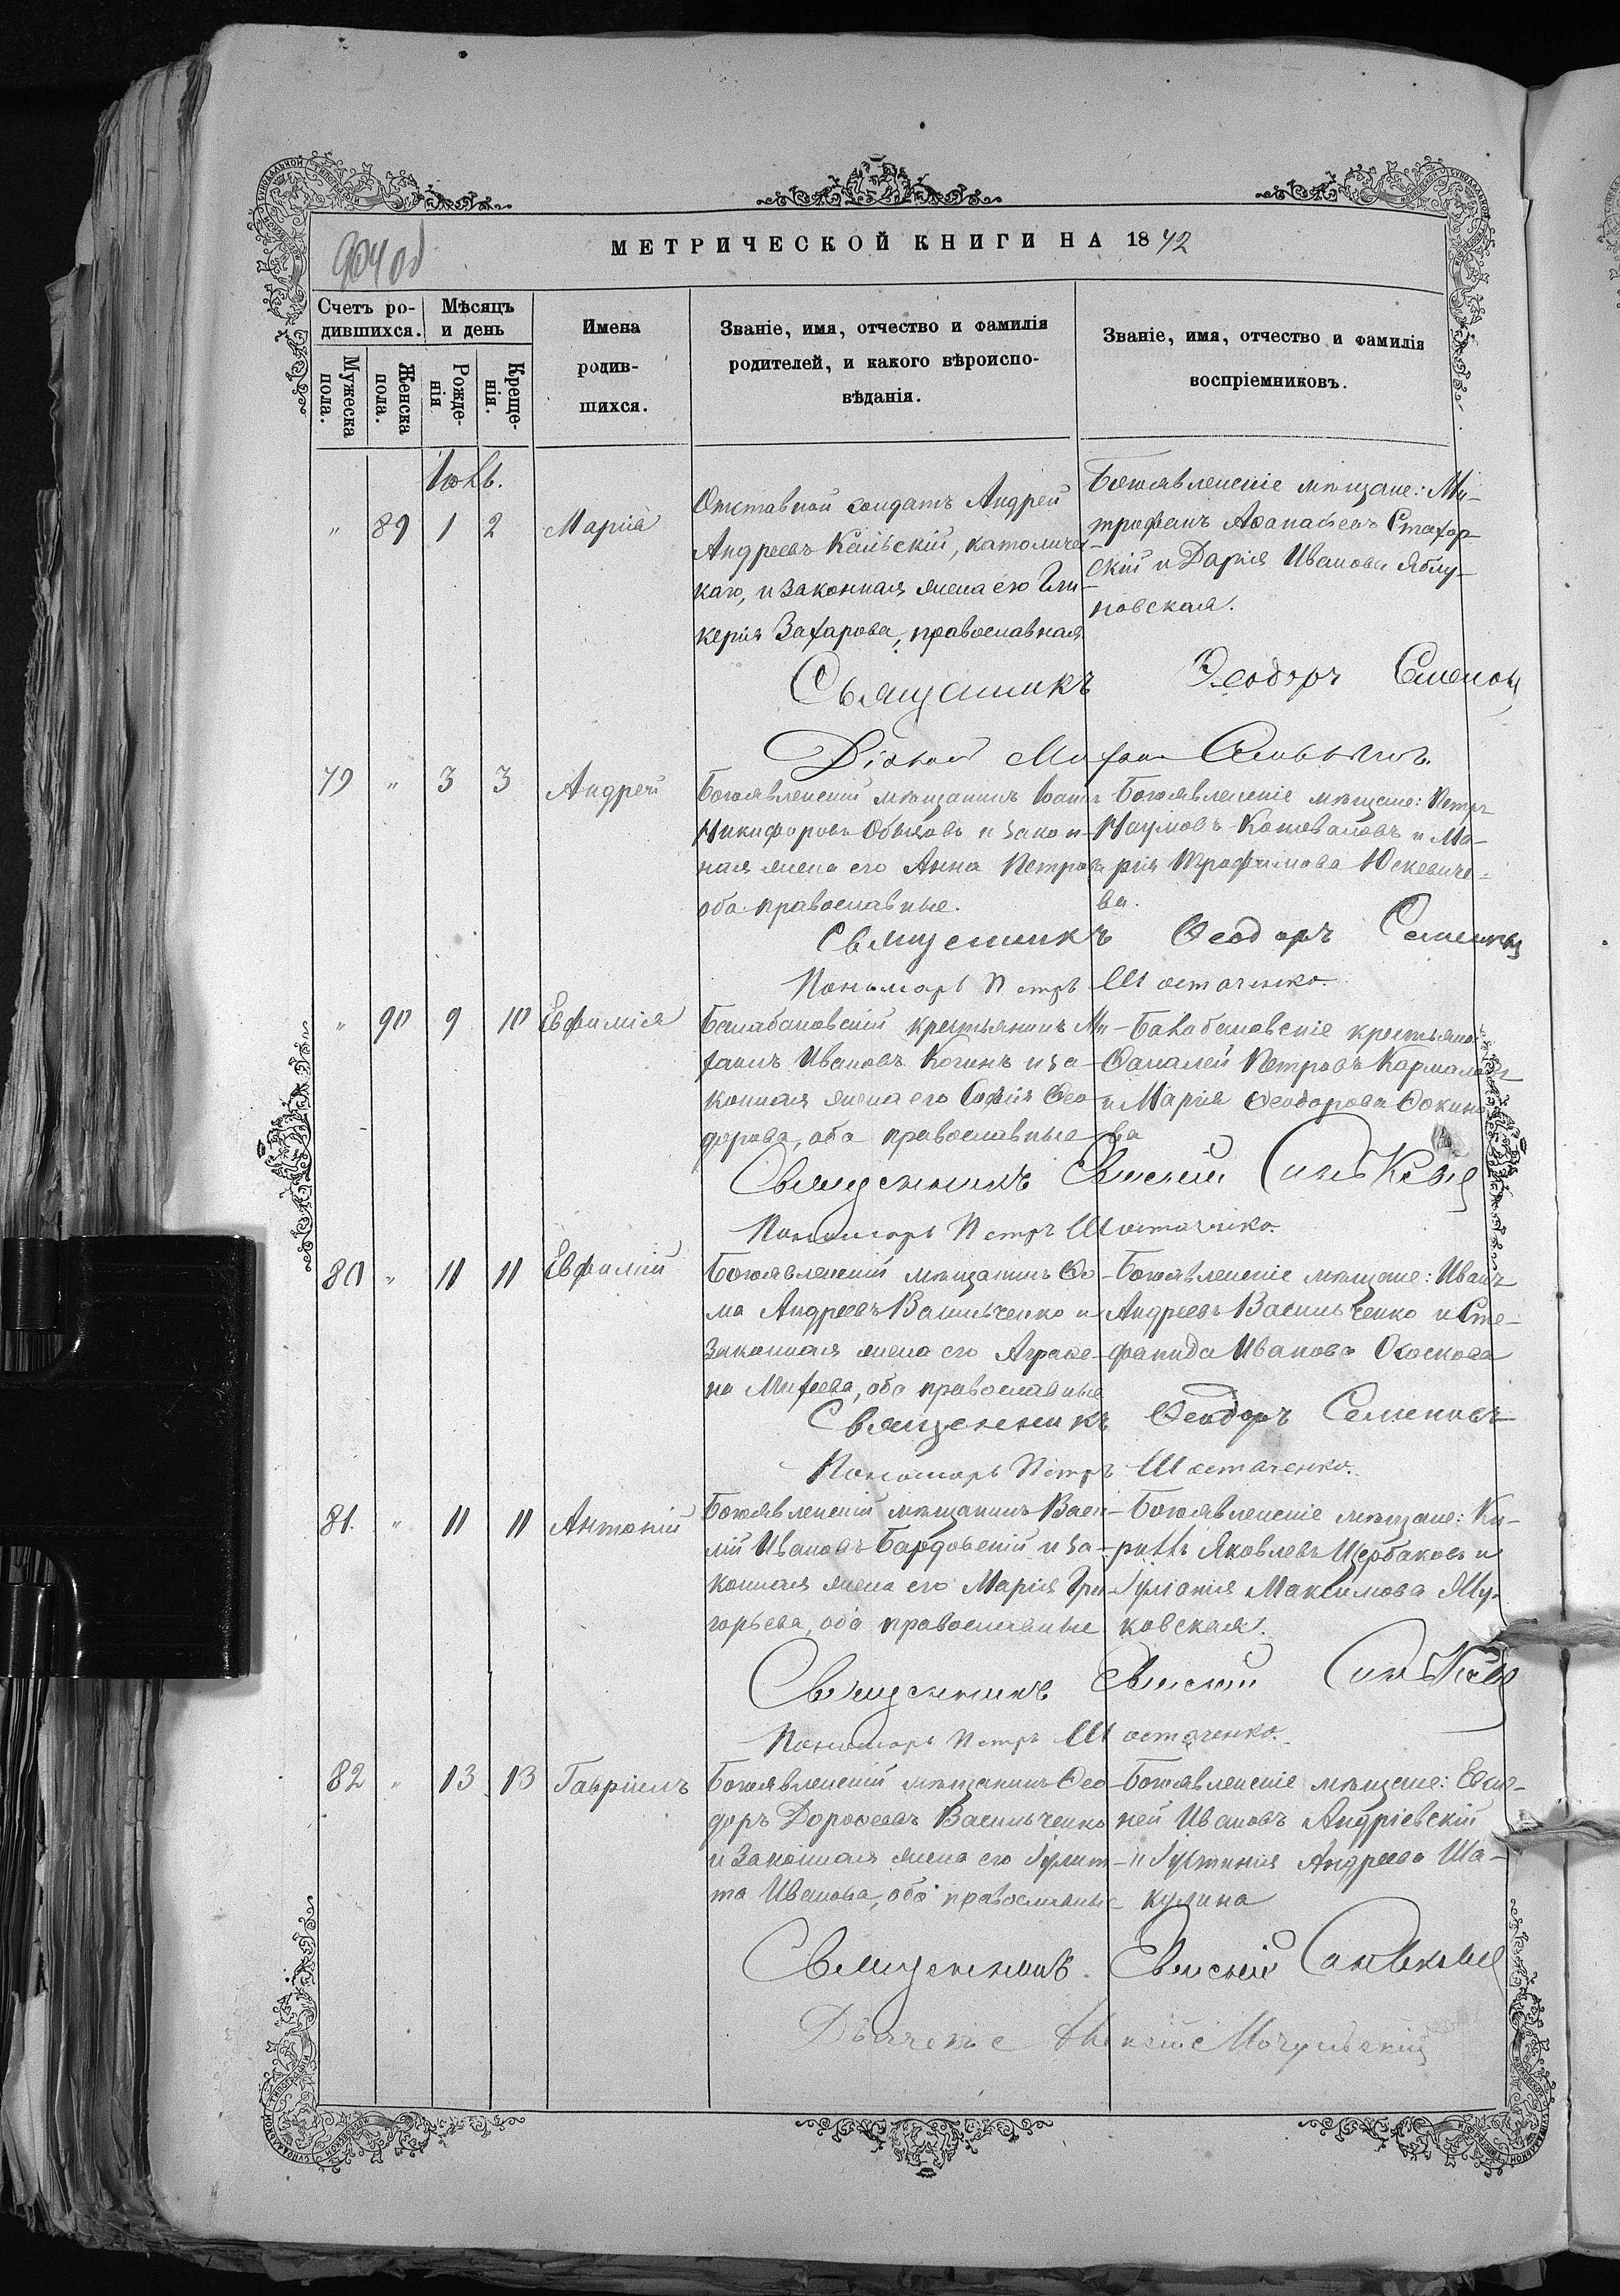 904 об
МЕТРИЧЕСКОЙ КНИГИ НА 1872
Счетъ ро-
дившихся.
Мужеска
пола.
Женска
пола.
Мѣсяцъ
и день
Рожде-
нія
Креще-
нія.
Имена
родив-
шихся.
Званіе, имя, отчество и фамилія
родителей, и какого вѣроиспо-
вѣданія.
Званіе, имя, отчество и фамилія
воспріемниковъ.
Іюль.
" 89 1 2 Марія
Отставной солдатъ Андрей
Андреевъ католичес-
каго, и законная жена его Гли-
керія Захарова, православная
Богоявленскіе мѣщане: Ми-
трофанъ Аѳанасьевъ
скій и Дарія Иванова Яблу-
новская.
Священникъ Ѳеодоръ Семеновъ
Діаконъ
79 " 3 3 Андрей
Богоявленскій мѣщанинъ Іоаннъ
Никифоровъ и закон-
ная жена его Анна Петрова
оба православные.
Богоявленскіе мѣщане: Петръ
Наумовъ Коноваловъ и Ма-
рія Трофимова Юскевиче-
ва.
Священникъ Ѳеодоръ Семеновъ
Пономарь Петръ Шостаченко.
" 90 9 10 Евфимія
Балабановскій крестьянинъ Ми-
хаилъ Ивановъ Когинъ и за-
конная жена его Софія Ѳео-
дорова, оба православные
Балабановскіе крестьяне
Петровъ
и Марія Ѳеодорова Фокина
ва
Священникъ Евисеій Синькевич
Пономарь Петръ Шостаченко.
80 " 11 11 Евфимій
Богоявленскій мѣщанинъ Ѳо-
ма Андреевъ Васильченко и
законная жена его Агрипе-
на Михеева, оба православные
Богоявленскіе мѣщане: Иванъ
Андреевъ Васильченко и Сте-
фанида Иванова
Священникъ Ѳеодоръ Семеновъ
Пономарь Петръ Шостаченко.
81. " 11 11 Антоній
Богоявленскій мѣщанинъ Васи-
лій Ивановъ Бардовскій и за-
конная жена его Марія Гри-
горьева, оба православные
Богоявленскіе мѣщане: Ки-
риллъ Яковлевъ Щербаковъ и
Іуліанія Максимова
ковская.
Священникъ
Пономарь Петръ Шостаченко.
82 " 13 13 Гавріилъ
Богоявленскій мѣщанинъ Ѳео-
доръ Дороѳеевъ Васильченко
и законная жена его Іулит-
та Иванова, оба православные
Богоявленскіе мѣщане: Евге-
ній Ивановъ Андріевскій
и Іустинія Андреева Ша-
кулина
Священникъ
Дьячекъ Алексій Могульскій